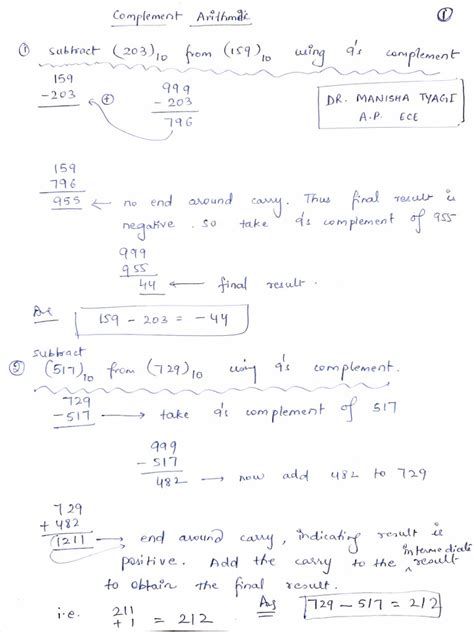 Complement Arithmetic
①
① Subtract (203)10 from (159)10 using 9's complement
159
-203 ← ⊕
999
-203
796
DR. MANISHA TYAGI
A.P. ECE
159
796
955 ← no end around carry. Thus final result is
negative. So take 9's complement of 955
999
955
44 ← final result.
Ans 159 - 203 = -44
② Subtract
(517)10 from (729)10 using 9's complement.
729
-517 → take 9's complement of 517
999
-517
482 → now add 482 to 729
729
+482
1211 → end around carry, indicating result is
positive. Add the carry to the intermediate result
to obtain the final result.
i.e. 211
+1 = 212
Ans 729 - 517 = 212